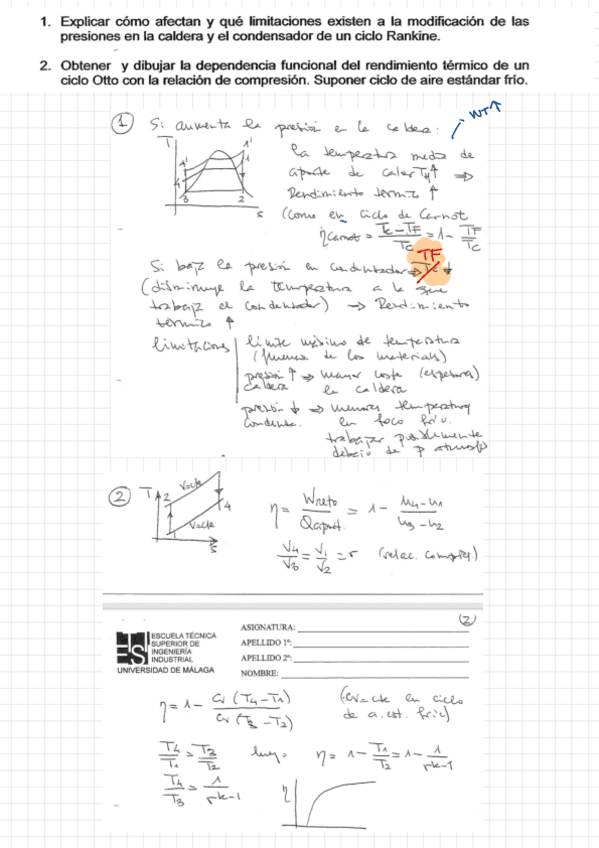 1. Explicar cómo afectan y qué limitaciones existen a la modificación de las
presiones en la caldera y el condensador de un ciclo Rankine.
2. Obtener y dibujar la dependencia funcional del rendimiento térmico de un
ciclo Otto con la relación de compresión. Suponer ciclo de aire estándar frío.
WT↑
① Si aumenta la presión en la caldera:
T
la temperatura media de
aporte de calor TH↑ ⇒
Rendimiento térmico ↑
(como en ciclo de Carnot
1' 1' 4' 4 3 2 s
ηCarnot = (Tc-TF)/Tc = 1 - TF/Tc
TF
Si baja la presión en condensador ⇒ Tc ↓
(disminuye la temperatura a la que
trabaja el condensador) → Rendimiento
térmico ↑
limitaciones
límite máximo de temperatura
(fluencia de los materiales)
presión ↑ ⇒ mayor coste (espesores)
caldera en caldera
presión ↓ ⇒ menores temperatura
condens. en foco frío.
trabajar posiblemente
debajo de p atmosf)
② T 2 V=cte 4 V=cte s
η = Wneto/Qaport. = 1 - (u4-u1)/(u3-u2)
V4/V3 = V1/V2 = r (relac. compres.)
(2)
ESCUELA TÉCNICA
SUPERIOR DE
INGENIERÍA
INDUSTRIAL
UNIVERSIDAD DE MÁLAGA
ASIGNATURA:
APELLIDO 1º:
APELLIDO 2º:
NOMBRE:
η = 1 - Cv (T4-T1)/Cv (T3-T2) (Cv=cte en ciclo
de a. est. frío)
T4/T1 = T3/T2 luego η = 1 - T1/T2 = 1 - 1/r^k-1
T4/T3 = 1/r^k-1
η